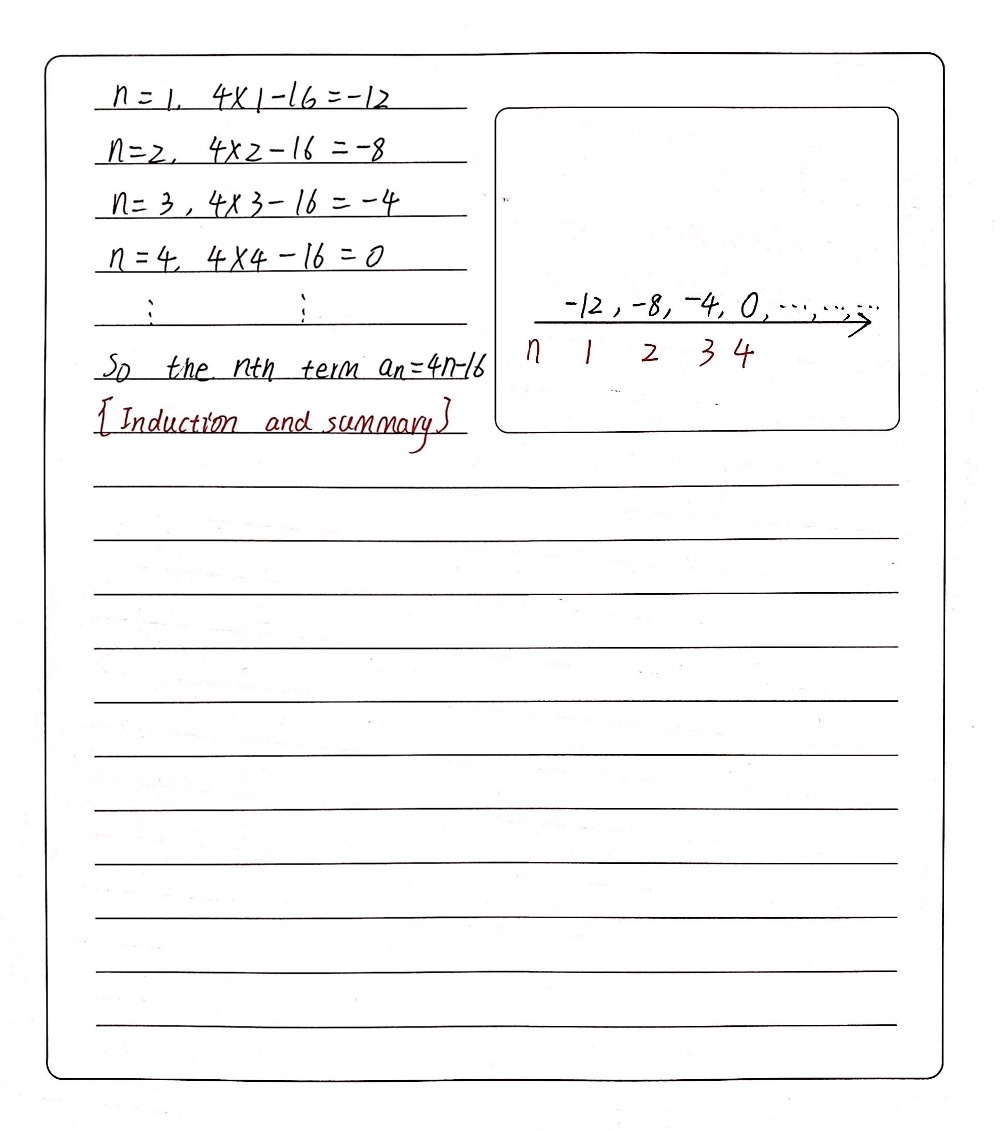 n = 1, 4×1-16=-12
n=2, 4×2-16=-8
n=3, 4×3-16=-4
n=4, 4×4-16=0
⋮ ⋮
So the nth term an=4n-16
[Induction and summary]
-12, -8, -4, 0, ..., ..., ...
n 1 2 3 4